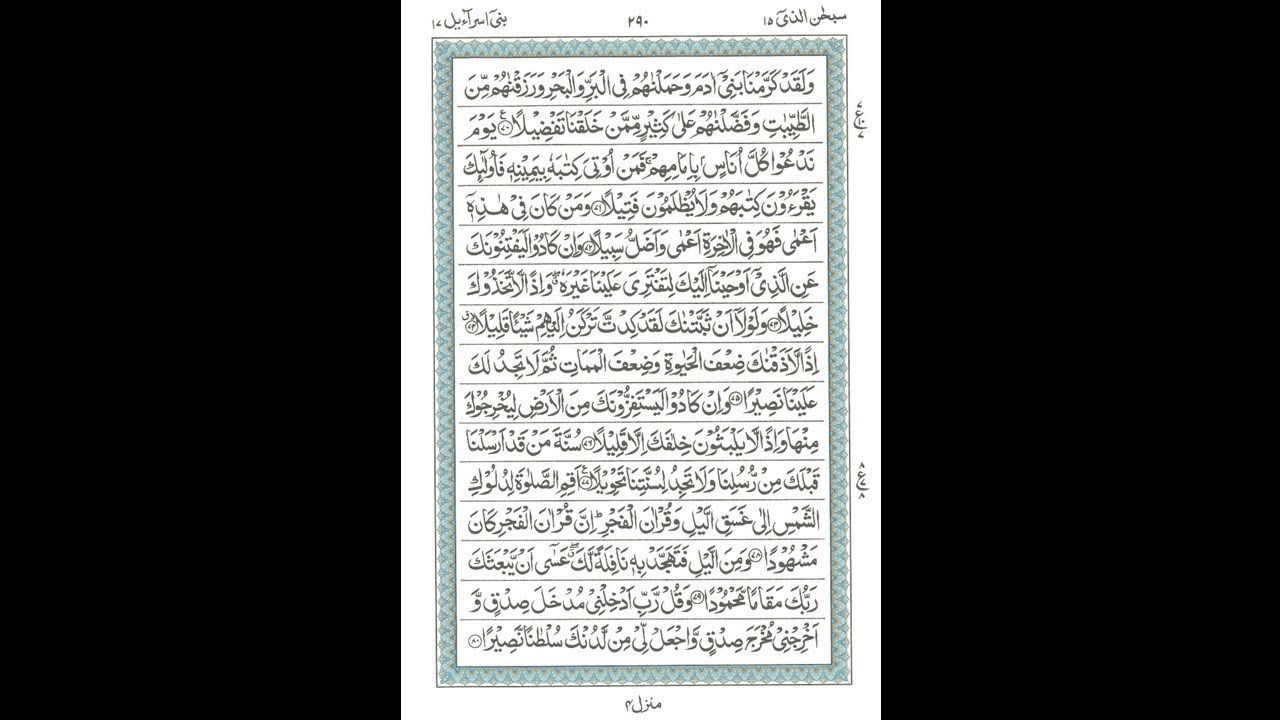 سبحٰن الذیٓ ۱۵
۲۹۰
بنیٓ اسرآءیل ۱۷
وَلَقَدْ كَرَّمْنَا بَنِیْۤ اٰدَمَ وَحَمَلْنٰهُمْ فِی الْبَرِّ وَالْبَحْرِ وَرَزَقْنٰهُمْ مِّنَ
الطَّیِّبٰتِ وَفَضَّلْنٰهُمْ عَلٰی كَثِیْرٍ مِّمَّنْ خَلَقْنَا تَفْضِیْلًا ﴿۷۰﴾ یَوْمَ
نَدْعُوْا كُلَّ اُنَاسٍۭ بِاِمَامِهِمْ ۚ فَمَنْ اُوْتِیَ كِتٰبَهٗ بِیَمِیْنِهٖ فَاُولٰٓىِٕكَ
یَقْرَءُوْنَ كِتٰبَهُمْ وَلَا یُظْلَمُوْنَ فَتِیْلًا ﴿۷۱﴾ وَمَنْ كَانَ فِیْ هٰذِهٖۤ
اَعْمٰی فَهُوَ فِی الْاٰخِرَةِ اَعْمٰی وَاَضَلُّ سَبِیْلًا ﴿۷۲﴾ وَاِنْ كَادُوْا لَیَفْتِنُوْنَكَ
عَنِ الَّذِیْۤ اَوْحَیْنَاۤ اِلَیْكَ لِتَفْتَرِیَ عَلَیْنَا غَیْرَهٗ ۖۗ وَاِذًا لَّاتَّخَذُوْكَ
خَلِیْلًا ﴿۷۳﴾ وَلَوْلَاۤ اَنْ ثَبَّتْنٰكَ لَقَدْ كِدْتَّ تَرْكَنُ اِلَیْهِمْ شَیْـًٔا قَلِیْلًا ﴿۷۴﴾
اِذًا لَّاَذَقْنٰكَ ضِعْفَ الْحَیٰوةِ وَضِعْفَ الْمَمَاتِ ثُمَّ لَا تَجِدُ لَكَ
عَلَیْنَا نَصِیْرًا ﴿۷۵﴾ وَاِنْ كَادُوْا لَیَسْتَفِزُّوْنَكَ مِنَ الْاَرْضِ لِیُخْرِجُوْكَ
مِنْهَا وَاِذًا لَّا یَلْبَثُوْنَ خِلٰفَكَ اِلَّا قَلِیْلًا ﴿۷۶﴾ سُنَّةَ مَنْ قَدْ اَرْسَلْنَا
قَبْلَكَ مِنْ رُّسُلِنَا وَلَا تَجِدُ لِسُنَّتِنَا تَحْوِیْلًا ﴿۷۷﴾ اَقِمِ الصَّلٰوةَ لِدُلُوْكِ
الشَّمْسِ اِلٰی غَسَقِ الَّیْلِ وَقُرْاٰنَ الْفَجْرِ ؕ اِنَّ قُرْاٰنَ الْفَجْرِ كَانَ
مَشْهُوْدًا ﴿۷۸﴾ وَمِنَ الَّیْلِ فَتَهَجَّدْ بِهٖ نَافِلَةً لَّكَ ۖۗ عَسٰۤی اَنْ یَّبْعَثَكَ
رَبُّكَ مَقَامًا مَّحْمُوْدًا ﴿۷۹﴾ وَقُلْ رَّبِّ اَدْخِلْنِیْ مُدْخَلَ صِدْقٍ وَّ
اَخْرِجْنِیْ مُخْرَجَ صِدْقٍ وَّاجْعَلْ لِّیْ مِنْ لَّدُنْكَ سُلْطٰنًا نَّصِیْرًا ﴿۸۰﴾
منزل ۴